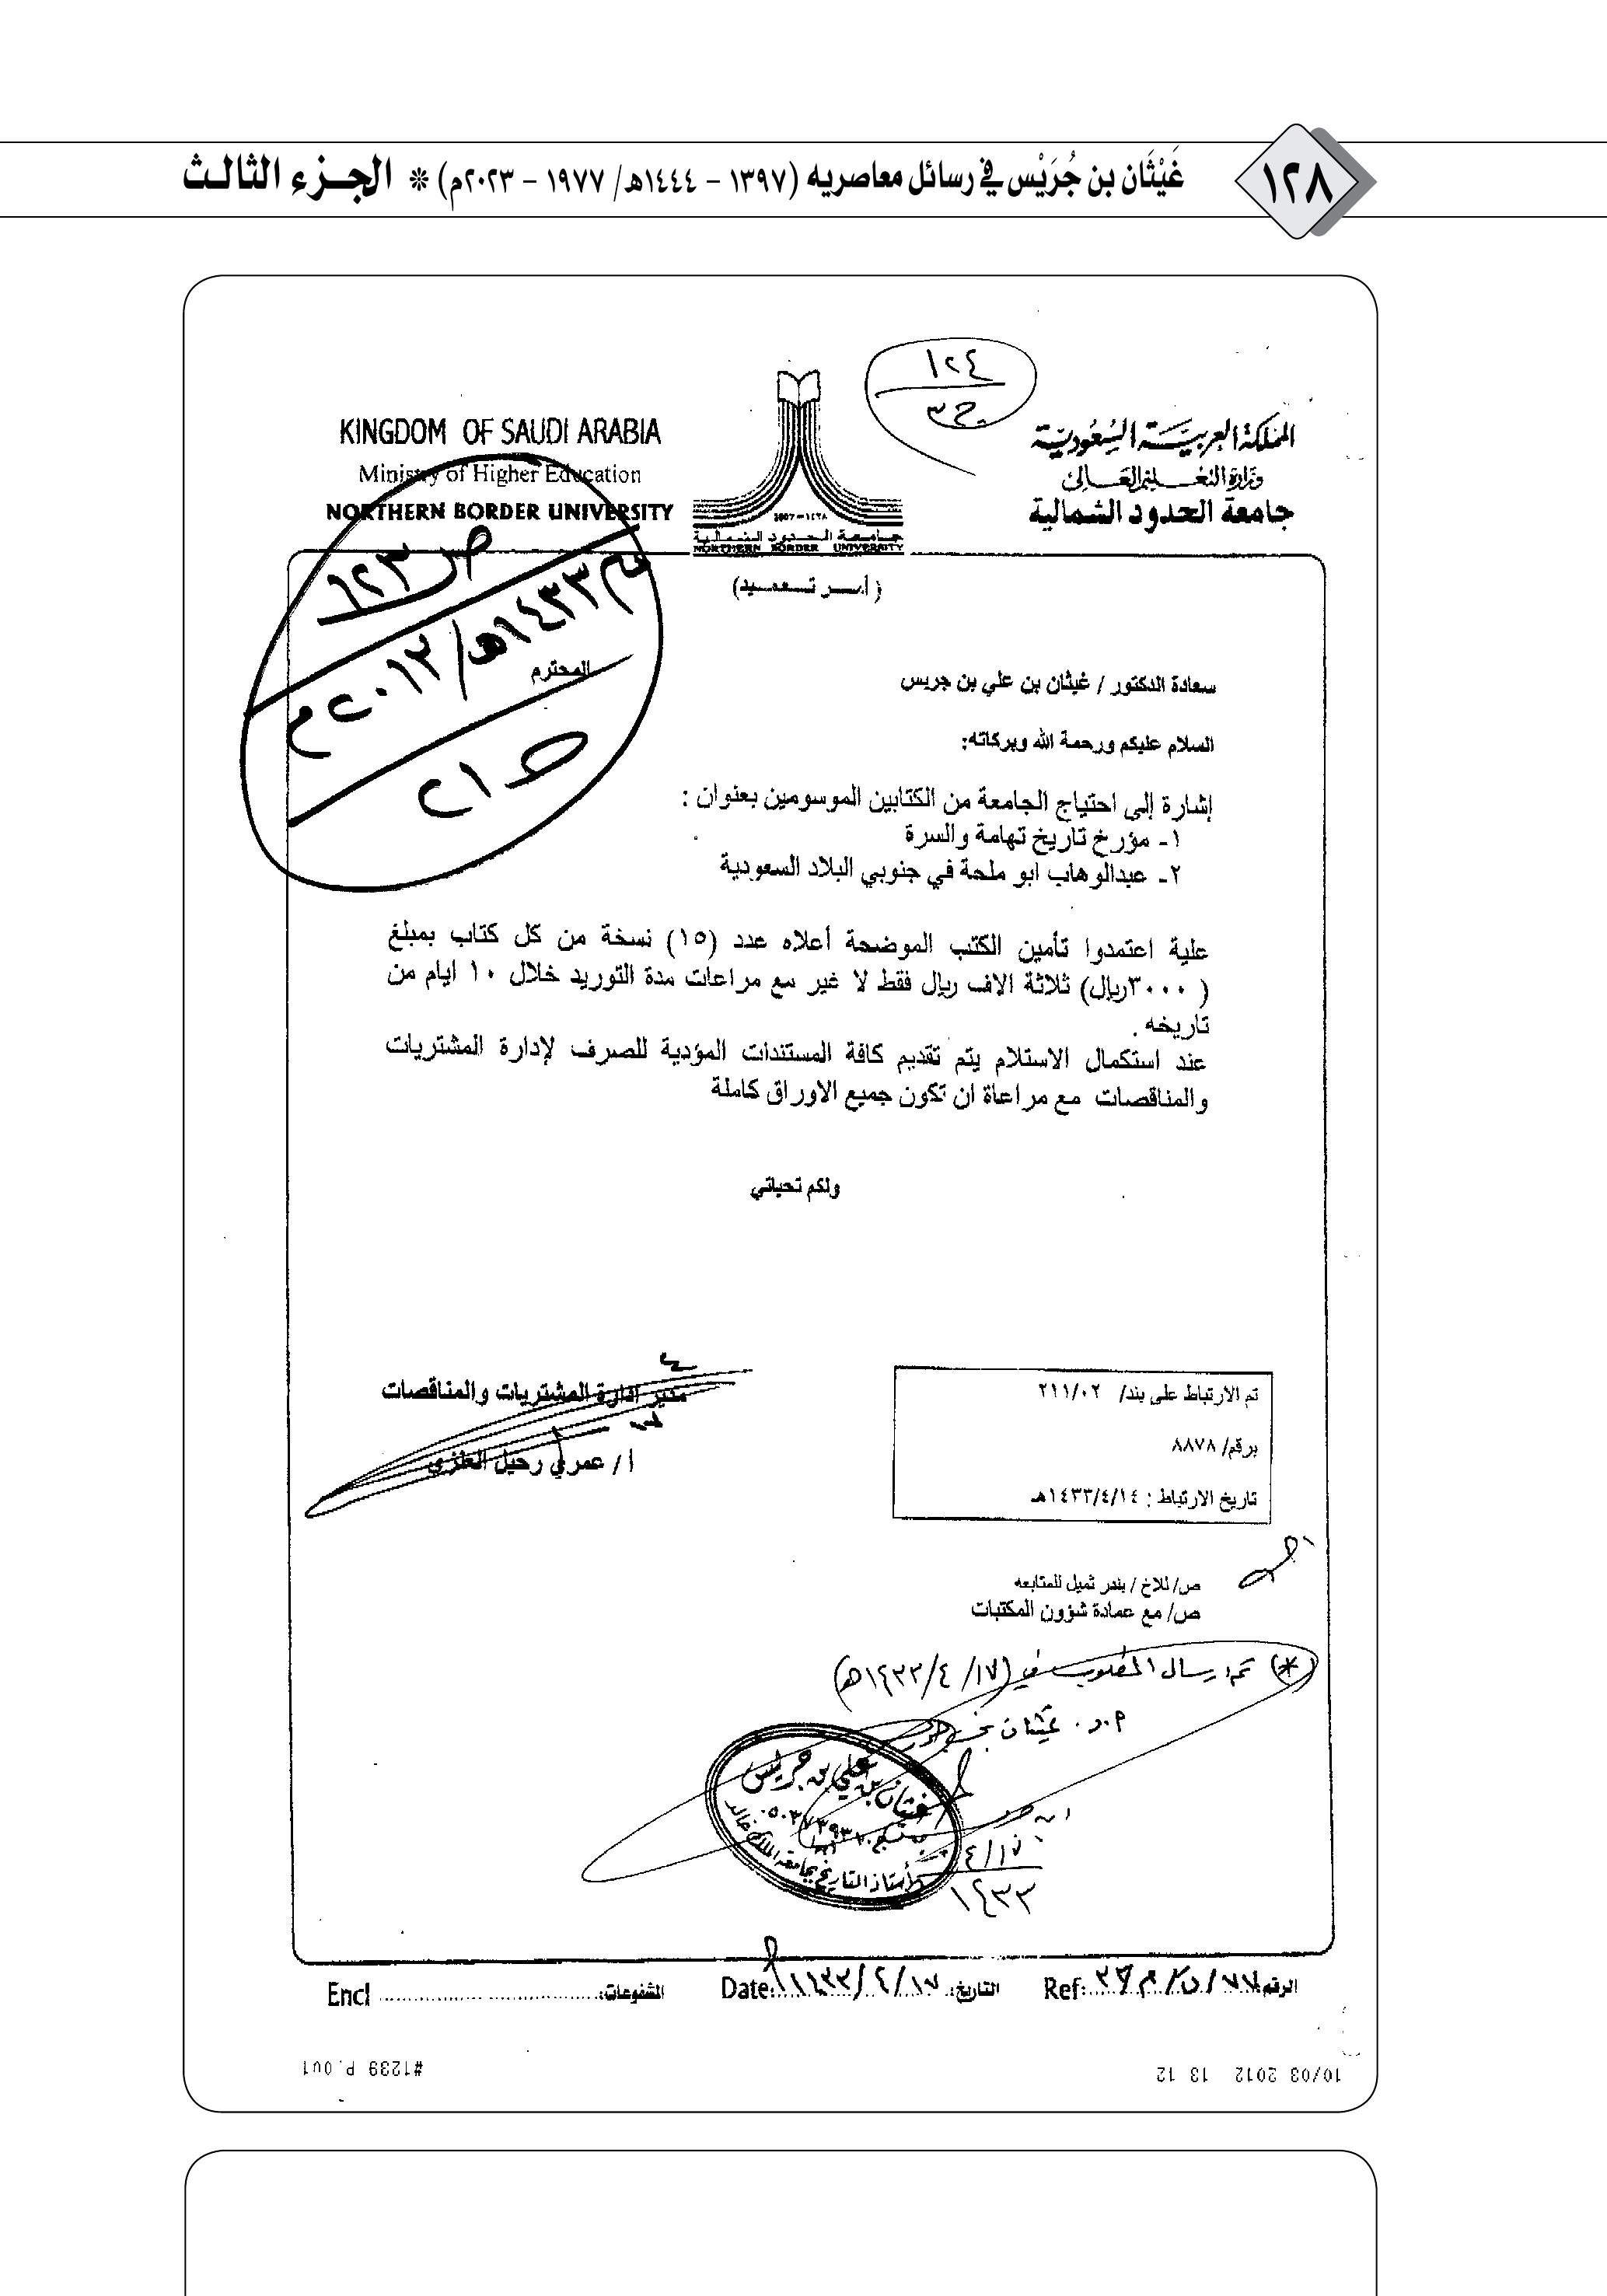 ١٢٨
غَيْثَان بن جُرَيْس في رسائل معاصريه (١٣٩٧ – ١٤٤٤هـ/ ١٩٧٧ – ٢٠٢٣م) * الجزء الثالث
١٢٤
ج٣
المملكة العربية السعودية
وزارة التعليم العالي
جامعة الحدود الشمالية
KINGDOM OF SAUDI ARABIA
Ministry of Higher Education
NORTHERN BORDER UNIVERSITY
2007-١٤٢٨
جامعة الحدود الشمالية
NORTHERN BORDER UNIVERSITY
ص ١٢٣
عام ١٤٣٣هـ/٢٠١٢م
(أمر تعميد)
سعادة الدكتور / غيثان بن علي بن جريس المحترم
السلام عليكم ورحمة الله وبركاته:
إشارة إلى احتياج الجامعة من الكتابين الموسومين بعنوان :
١- مؤرخ تاريخ تهامة والسرة
٢- عبدالوهاب ابو ملحة في جنوبي البلاد السعودية
علية اعتمدوا تأمين الكتب الموضحة أعلاه عدد (١٥) نسخة من كل كتاب بمبلغ
( ٣٠٠٠ريال) ثلاثة الاف ريال فقط لا غير مع مراعات مدة التوريد خلال ١٠ ايام من
تاريخه .
عند استكمال الاستلام يتم تقديم كافة المستندات المؤدية للصرف لإدارة المشتريات
والمناقصات مع مراعاة ان تكون جميع الاوراق كاملة
ولكم تحياتي
مدير ادارة المشتريات والمناقصات
أ / عمري رحيل العنزي
تم الارتباط على بند/ ٢١١/٠٢
برقم/ ٨٨٧٨
تاريخ الارتباط : ١٤٣٣/٤/١٤هـ
ص/ للاخ / بندر ثميل للمتابعه
ص/ مع عمادة شؤون المكتبات
(*) تم إرسال المطلوب في (١٧/ ٤/ ١٤٣٣هـ)
أ.د. غيثان بن جريس
غيثان بن علي بن جريس
أستاذ التاريخ بجامعة الملك خالد
٤/١٧
١٤٣٣
الرقم: Ref:
التاريخ: ١٤٣٣/٤/١٧ Date:
المشفوعات: Encl
10/03 2012 13 12
#1239 P.001